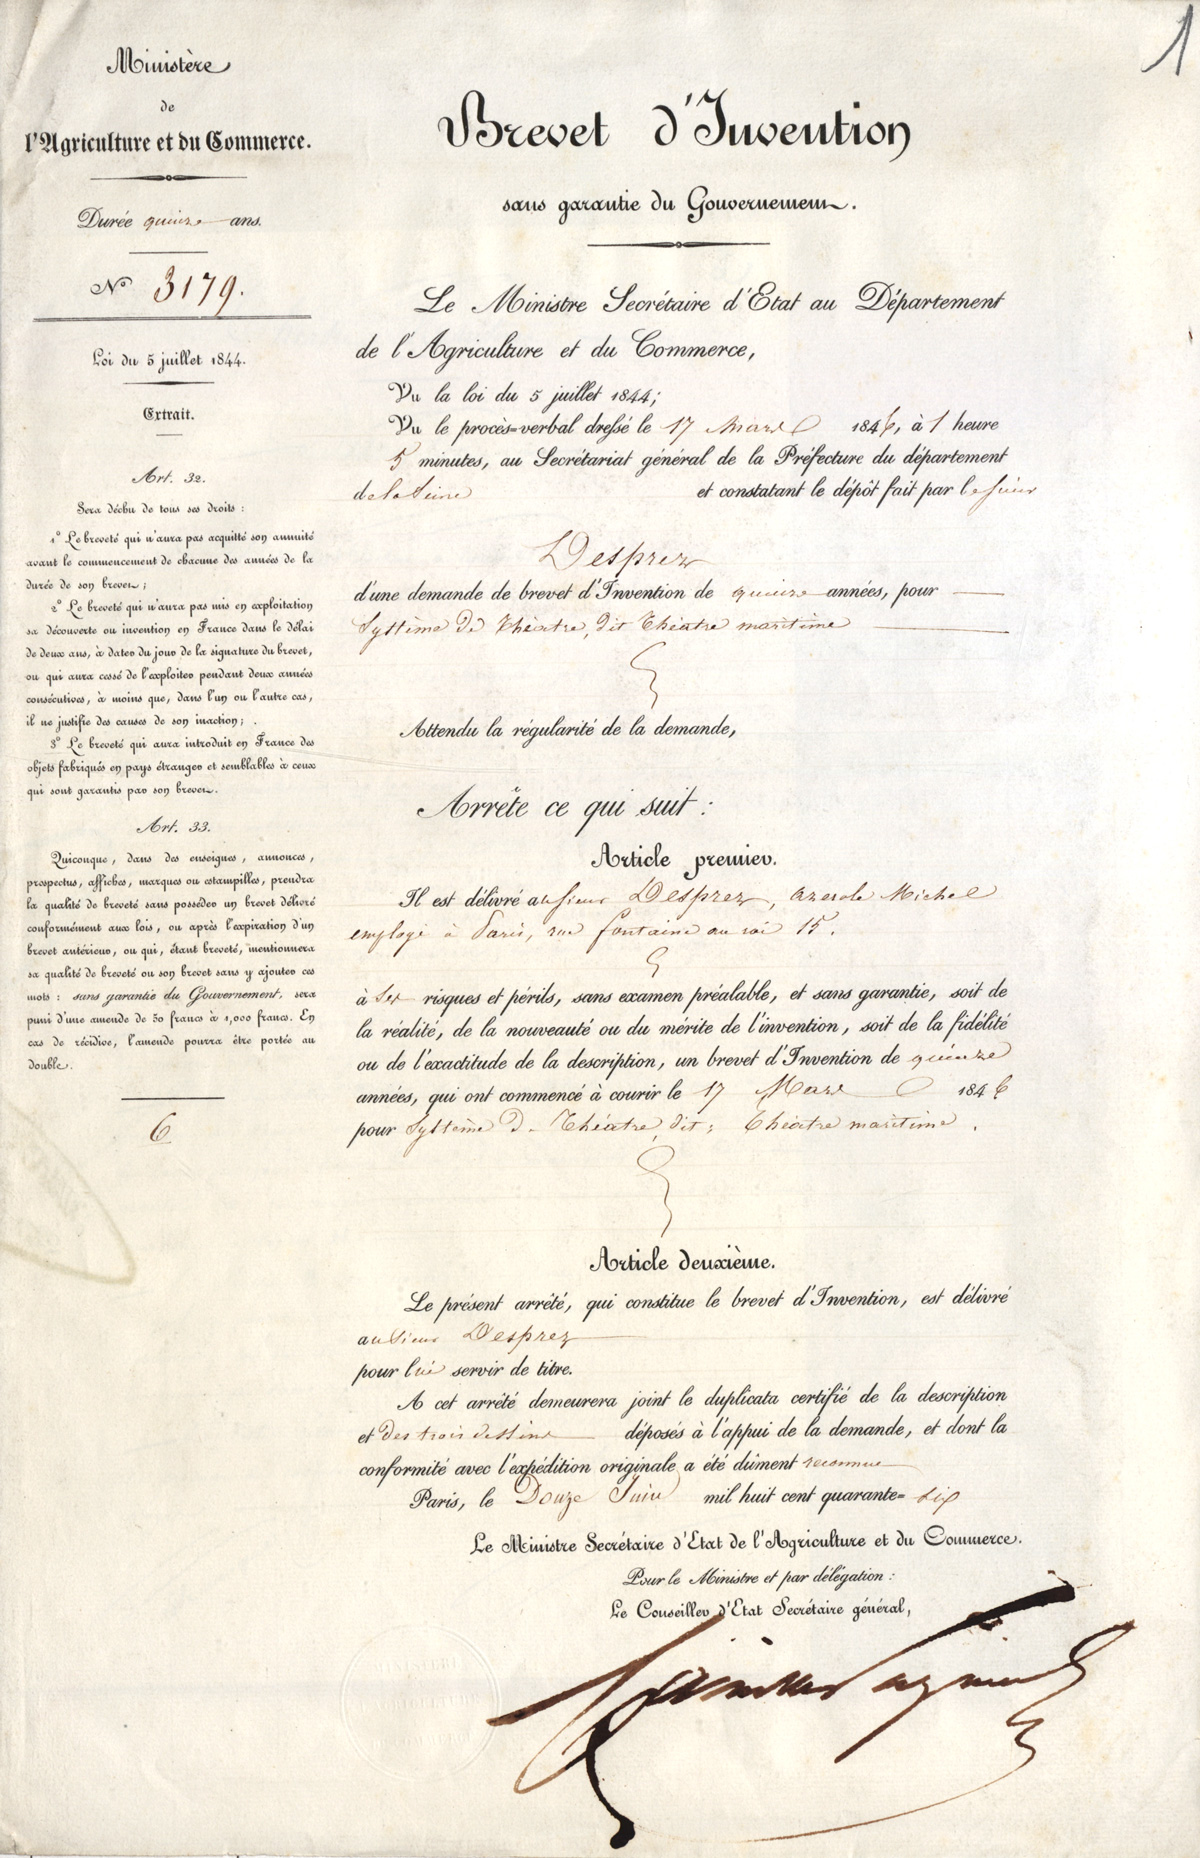 1
Ministère
de
l'Agriculture et du Commerce.
Durée quinze ans.
N° 3179.
Loi du 5 juillet 1844.
Extrait.
Art. 32.
Sera déchu de tous ses droits :
1° Le breveté qui n'aura pas acquitté son annuité
avant le commencement de chacune des années de la
durée de son brevet ;
2° Le breveté qui n'aura pas mis en exploitation
sa découverte ou invention en France dans le délai
de deux ans, à dater du jour de la signature du brevet,
ou qui aura cessé de l'exploiter pendant deux années
consécutives, à moins que, dans l'un ou l'autre cas,
il ne justifie des causes de son inaction ;
3° Le breveté qui aura introduit en France des
objets fabriqués en pays étranger et semblables à ceux
qui sont garantis par son brevet.
Art. 33.
Quiconque, dans des enseignes, annonces,
prospectus, affiches, marques ou estampilles, prendra
la qualité de breveté sans posséder un brevet délivré
conformément aux lois, ou après l'expiration d'un
brevet antérieur, ou qui, étant breveté, mentionnera
sa qualité de breveté ou son brevet sans y ajouter ces
mots : sans garantie du Gouvernement, sera
puni d'une amende de 50 francs à 1,000 francs. En
cas de récidive, l'amende pourra être portée au
double.
6
Brevet d'Invention
sans garantie du Gouvernement.
Le Ministre Secrétaire d'Etat au Département
de l'Agriculture et du Commerce,
Vu la loi du 5 juillet 1844;
Vu le procès=verbal dressé le 17 Mars 1846, à 1 heure
5 minutes, au Secrétariat général de la Préfecture du département
de la Seine et constatant le dépôt fait par le sieur
Desprez
d'une demande de brevet d'Invention de quinze années, pour
Système de théatre, dit théatre maritime
Attendu la régularité de la demande,
Arrête ce qui suit :
Article premier.
Il est délivré au sieur Desprez, Michel
employé à Paris, rue fontaine au roi 15.
à ses risques et périls, sans examen préalable, et sans garantie, soit de
la réalité, de la nouveauté ou du mérite de l'invention, soit de la fidélité
ou de l'exactitude de la description, un brevet d'Invention de quinze
années, qui ont commencé à courir le 17 Mars 1846
pour Système de Théatre, dit : théatre maritime.
Article deuxième.
Le présent arrêté, qui constitue le brevet d'Invention, est délivré
au Sieur Desprez
pour lui servir de titre.
A cet arrêté demeurera joint le duplicata certifié de la description
et des trois dessins déposés à l'appui de la demande, et dont la
conformité avec l'expédition originale a été dûment reconnue
Paris, le Douze Juin mil huit cent quarante= six
Le Ministre Secrétaire d'Etat de l'Agriculture et du Commerce.
Pour le Ministre et par délégation :
Le Conseiller d'Etat Secrétaire général,